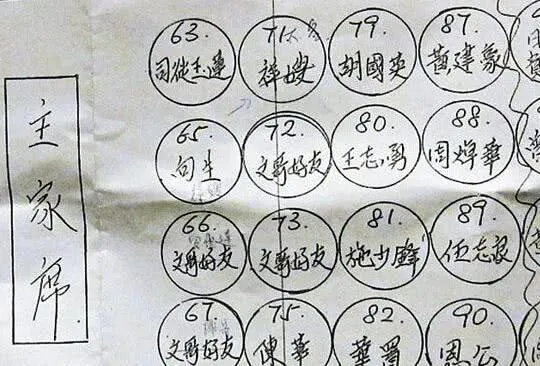 主家席
63.
司徒玉蓮
71.
祥嫂
79.
胡國英
87.
黃建豪
65.
句生
72.
文哥好友
80.
王志勇
88.
周焯華
66.
文哥好友
73.
文哥好友
81.
施少鋒
89.
伍志良
67.
文哥好友
75.
陳華
82.
華置
90.
恩公